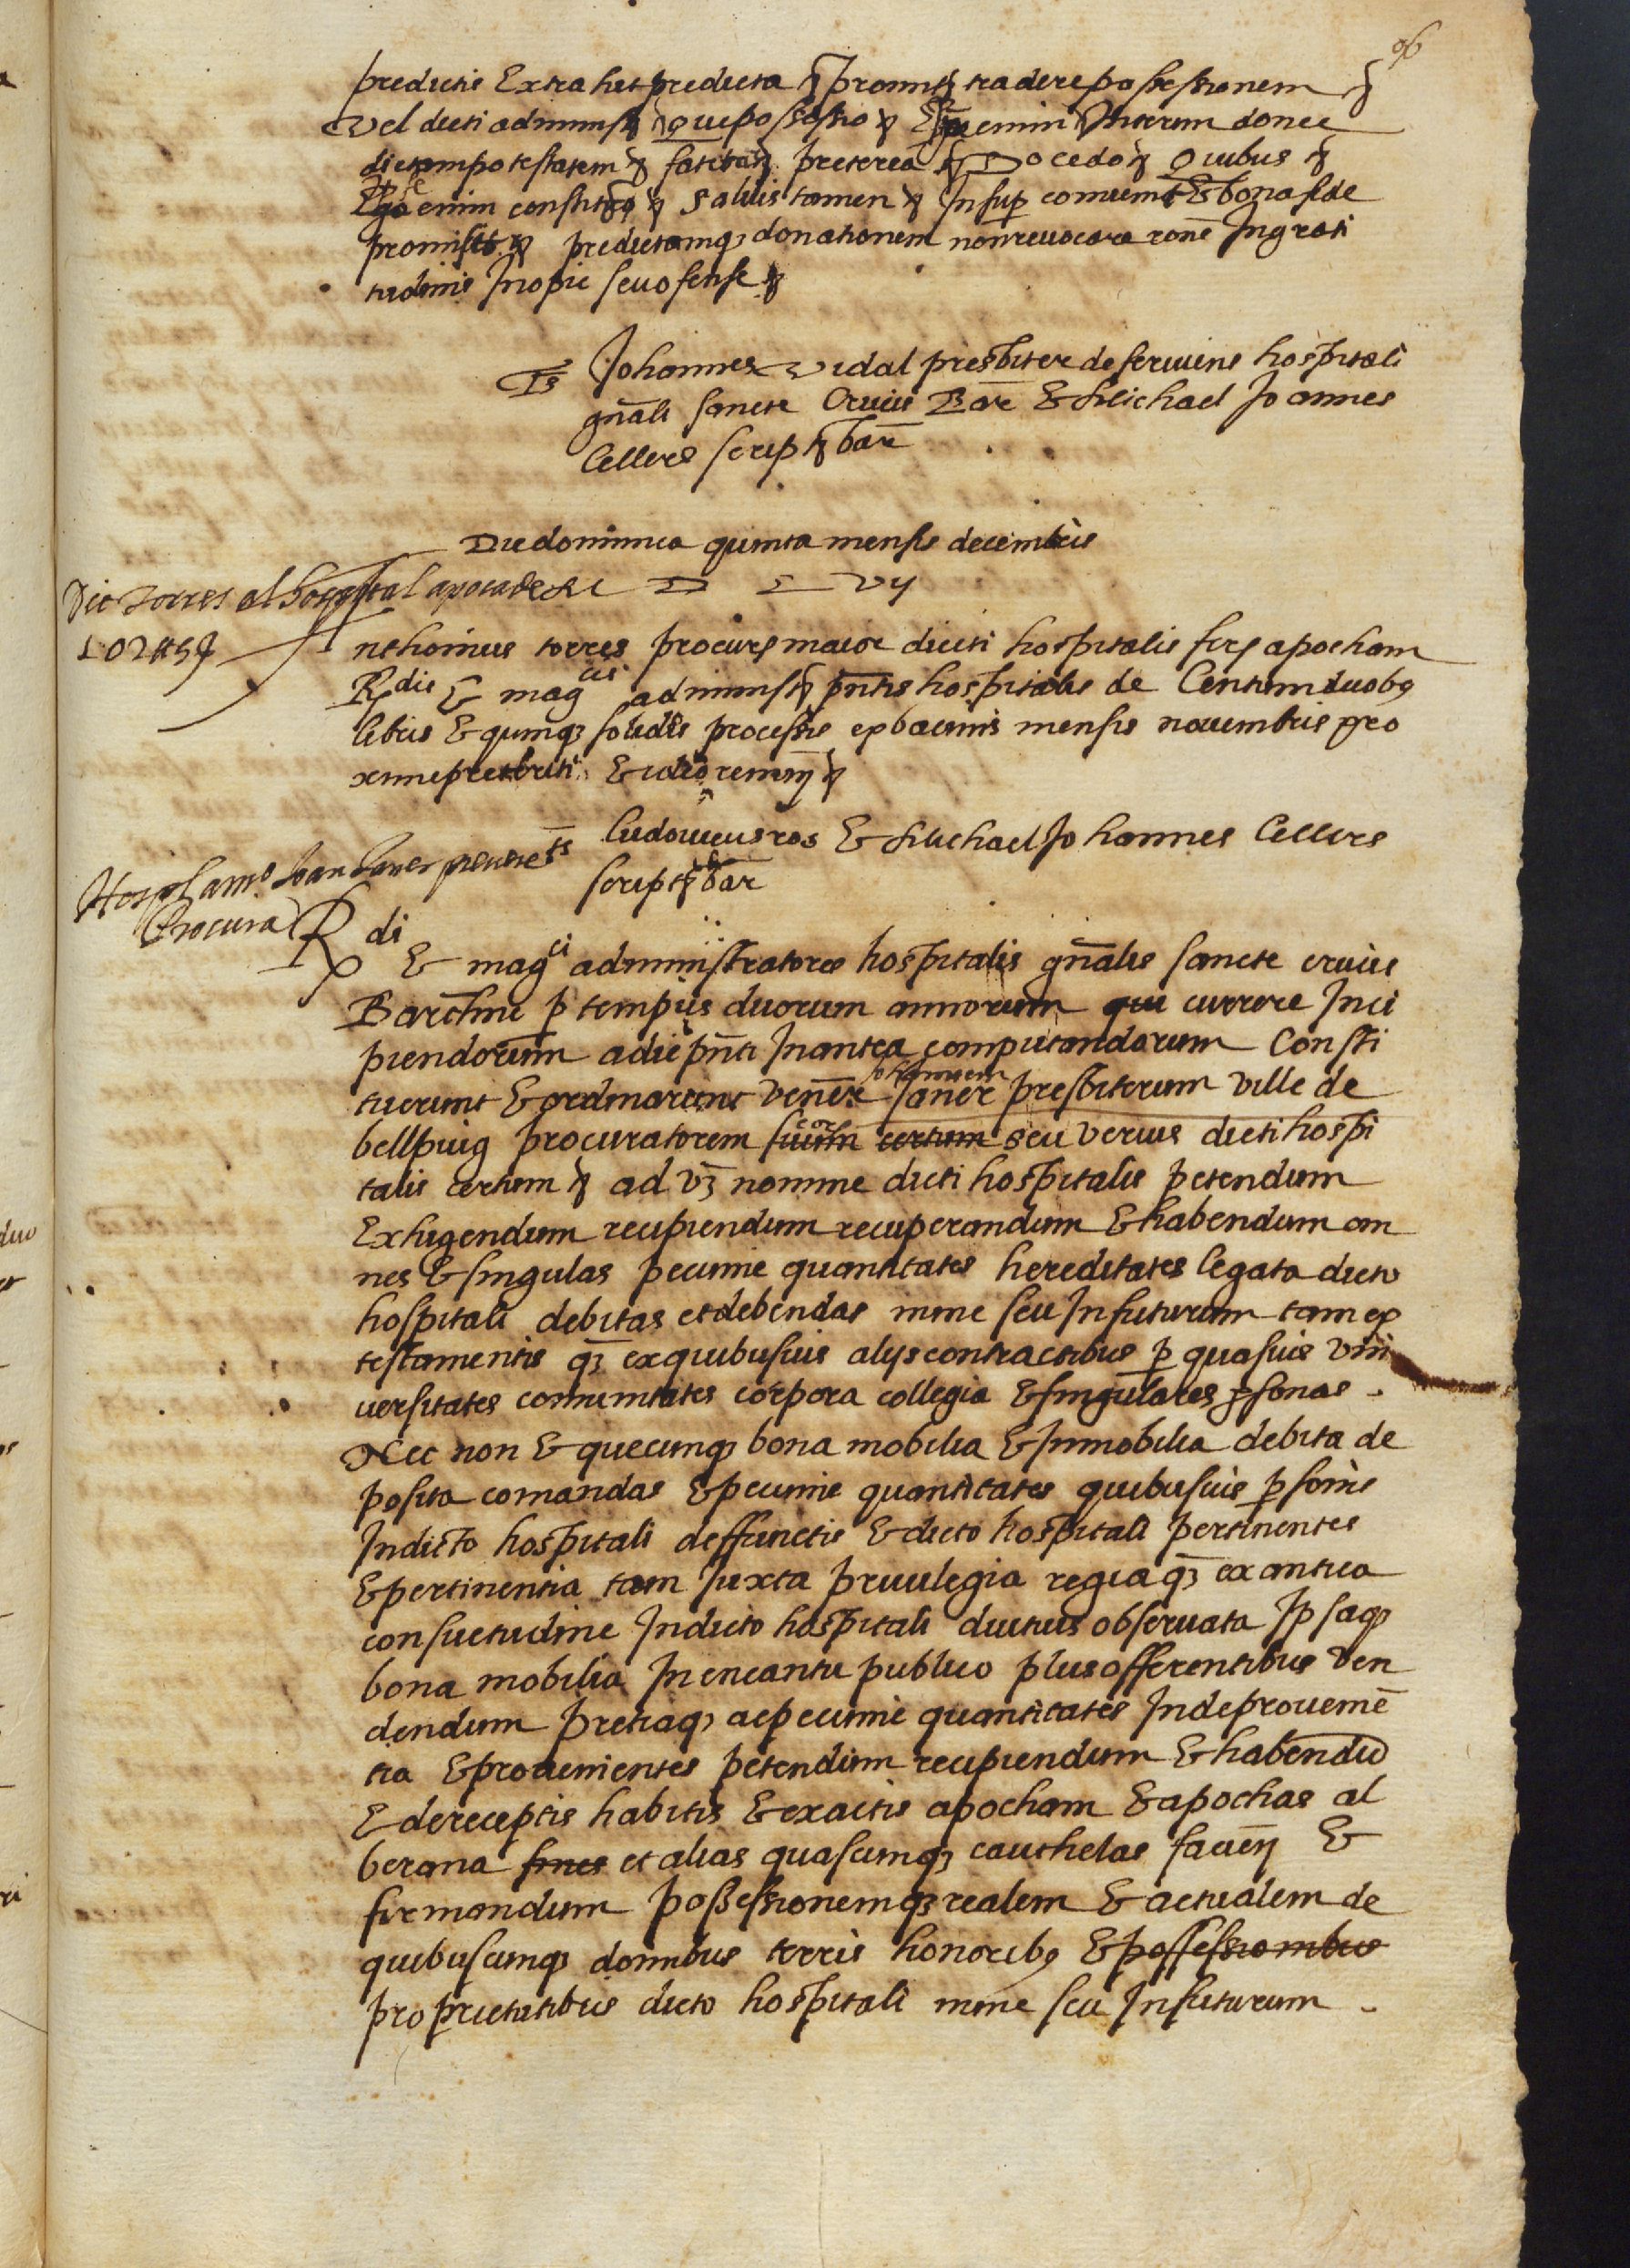 96
predictis Extrahet predicta & promitt tradere possessionem &
vel dicti administ & que possessio & Ego enim Interim donec
dictam potestatem & fateba & preterea & Do cedo & Quibus &
Ego enim constituo & Salvis tamen & Insup convenit & bona fide
promisit & predictamq donationem non revocare rone Ingrati
tudinis Inopie seu ofense &
Ts Johannes vidal presbiter deserviens hospitali
gnali sancte Crucis Bar & Michael Joannes
Cellers scrip & bar
Die dominica quinta mensis decembris
M D L vij
Vic torres al hospital apoca de
102 ll 5 s
Anthonius torres procur maior dicti hospitalis fir apocham
Rdis & magcis administ pntis hospitalis de Centum duobs
libris & quinq solidis processis ex bacinis mensis novembris pro
xime preteriti & ideo renun &
Ts ludovicus ros & Michael Johannes Cellers
script & bar
Hospl a mo Joan Janer prevere
Procura
Rdi & magci administratores hospitalis gnalis sancte crucis
Barchne p tempus duorum annorum que currere Inci
piendorum a die pnti Inantea computandorum Consti
tuerunt & ordinarunt vener Johannem Janer presbiterum ville de
bellpuig procuratorem suum certum seu verius dicti hospi
talis certum & ad vz nomine dicti hospitalis petendum
Exhigendum recipiendum recuperandum & habendum om
nes & singulas pecunie quantitates hereditates legata dicto
hospitali debitas et debendas nunc seu Infuturum tam ex
testamentis qz ex quibusvis alys contractibus p quasvis vni
versitates comunitates corpora collegia & singulares psonas .
Nec non & quecunq bona mobilia & Inmobilia debita de
posita comandas & pecunie quantitates quibusvis psonis
Indicto hospitali deffunctis & dicto hospitali pertinentes
& pertinentia tam Juxta privilegia regia qz ex antica
consuetudine Indicto hospitali diutius observata Ipsaq
bona mobilia In encantu publico plus offerentibus ven
dendum pretiaq ac pecunie quantitates Inde provenie
tia & provenientes petendum recipiendum & habendu
& de receptis habitis & exactis apocham & apochas al
berana fines et alias quascunq cauthelas facien &
firmandum possessionemq realem & actualem de
quibuscunq domibus terris honoribs & possessionibus
proprietatibus dicto hospitali nunc seu Infuturum .